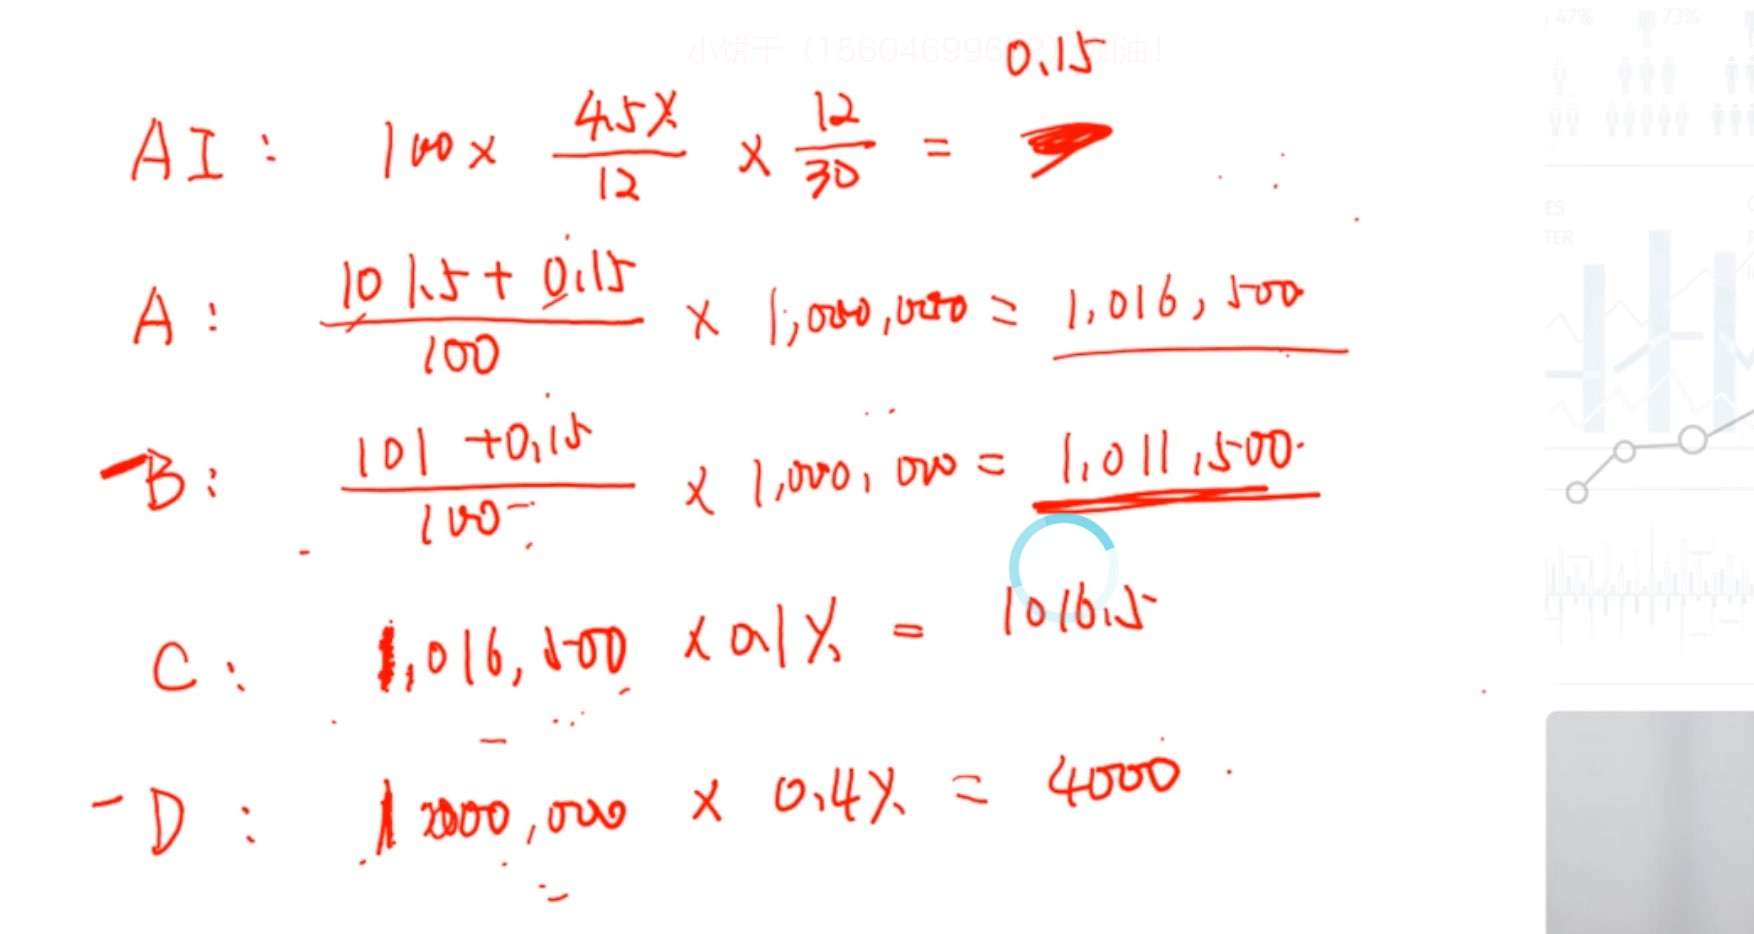 47% 73%
小饼干 (156046996 加油!
0.15
AI: 100 × 4.5%/12 × 12/30 =
ES
TER
A: 101.5+0.15/100 × 1,000,000 = 1,016,500
B: 101+0.15/100 × 1,000,000 = 1,011,500
C: 1,016,500 × 0.1% = 1016.5
D: 1000,000 × 0.4% = 4000